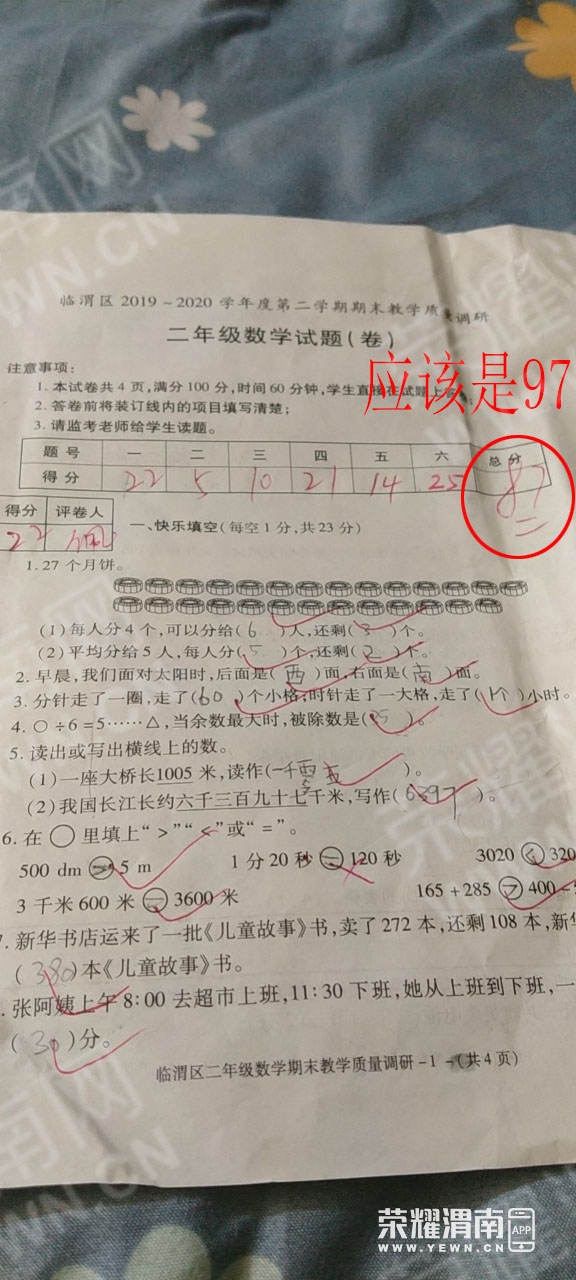 临渭区 2019～2020 学年度第二学期期末教学质量调研
二年级数学试题(卷)
注意事项:
1. 本试卷共 4 页,满分 100 分,时间 60 分钟,学生直接在试题上答卷;
应该是97
2. 答卷前将装订线内的项目填写清楚;
3. 请监考老师给学生读题。
题号 一 二 三 四 五 六 总分
得分 22 5 10 21 14 25 87
得分 评卷人
22
一、快乐填空(每空 1 分,共 23 分)
1. 27 个月饼。
(1) 每人分 4 个,可以分给( 6 )人,还剩( 3 )个。
(2) 平均分给 5 人,每人分( 5 )个,还剩( 2 )个。
2. 早晨,我们面对太阳时,后面是( 西 )面,右面是( 南 )面。
3. 分针走了一圈,走了( 60 )个小格;时针走了一大格,走了( 1个 )小时。
4. ○÷6=5……△,当余数最大时,被除数是( 35 )。
5. 读出或写出横线上的数。
(1) 一座大桥长1005 米,读作(一千零五)。
(2) 我国长江长约六千三百九十七千米,写作( 6397 )。
6. 在 ○ 里填上“>”“<”或“=”。
500 dm > 5 m 1 分 20 秒 = 120 秒 3020 < 320
3 千米 600 米 = 3600 米 165+285 > 400-5
7. 新华书店运来了一批《儿童故事》书,卖了 272 本,还剩 108 本,新华
( 380 )本《儿童故事》书。
. 张阿姨上午 8:00 去超市上班,11:30 下班,她从上班到下班,一
( 30 )分。
临渭区二年级数学期末教学质量调研-1-(共 4 页)
荣耀渭南 APP
WWW.YEWN.CN
南网
WN.CN
荣耀
南网
EWN.CN